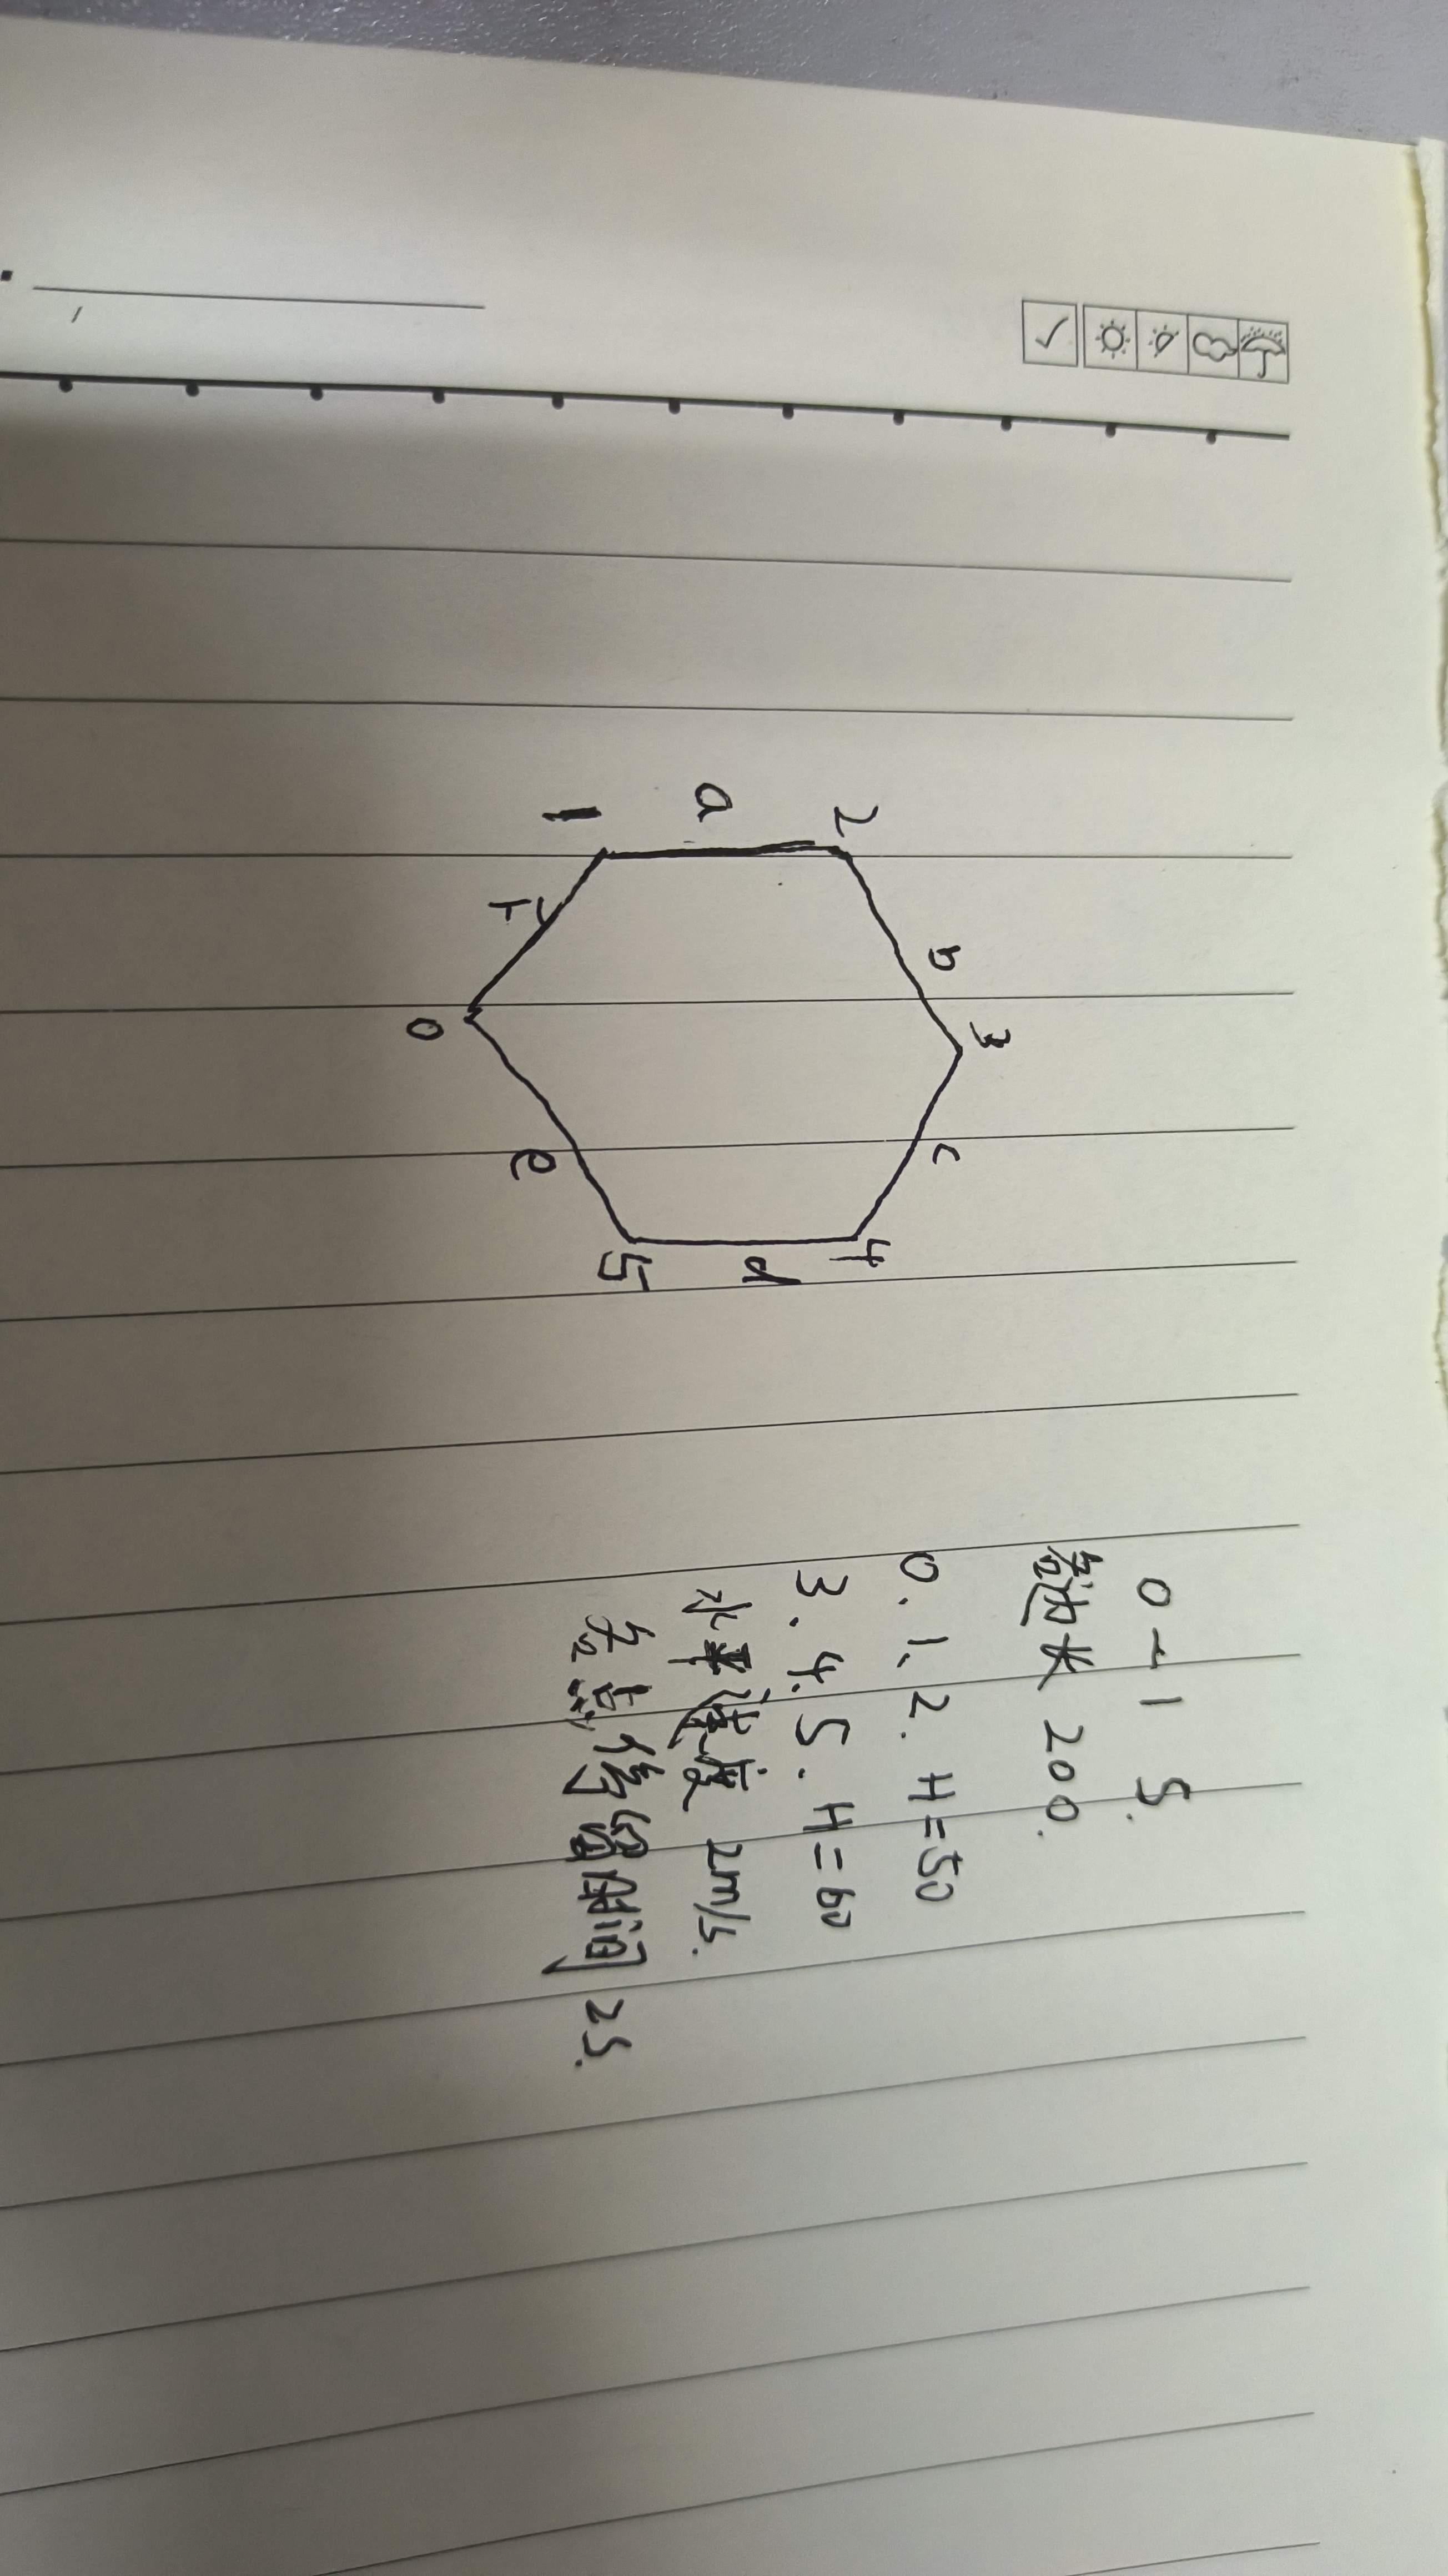 2
3
b
c
a
4
d
1
5
e
0
0~15.
各边长 200.
0.1、2. H=50
3.4.5. H=60
水平速度 2m/s.
各点停留时间 2s.